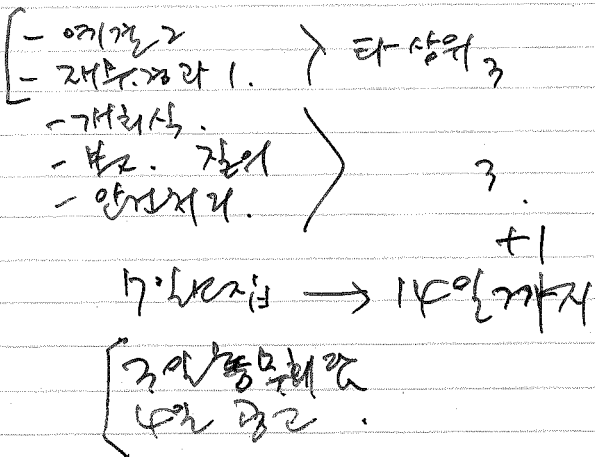 - 예결 2
- 재무경과 1. > 타상위 3
- 개회식.
- 보고. 질의 3.
- 안건처리.
+1
17일 → 14일까지
3일
4일 공고.